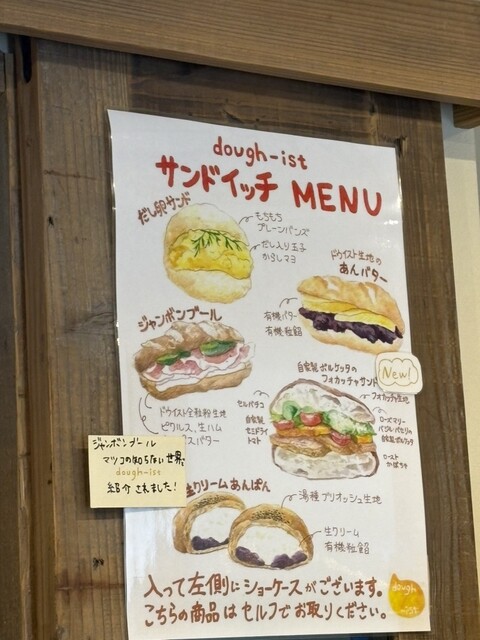 dough-ist
サンドイッチ MENU
だし卵サンド
もちもち
プレーンバンズ
だし入り玉子
からしマヨ
ドゥイスト生地の
あんバター
有機バター
有機粒餡
ジャンボンブール
ドゥイスト全粒粉生地
ピクルス、生ハム
スバター
New!
自家製ポルケッタの
フォカッチャサンド
フォカッチャ生地
セルバチコ
自家製
セミドライ
トマト
ローズマリー
バジル・パセリの
自家製ポルケッタ
ロースト
かぼちゃ
ジャンボンブール
マツコの知らない世界で
dough-ist
紹介されました!
生クリームあんぱん
湯種ブリオッシュ生地
生クリーム
有機粒餡
入って左側にショーケースがございます。
こちらの商品はセルフでお取りください。
dough
-ist